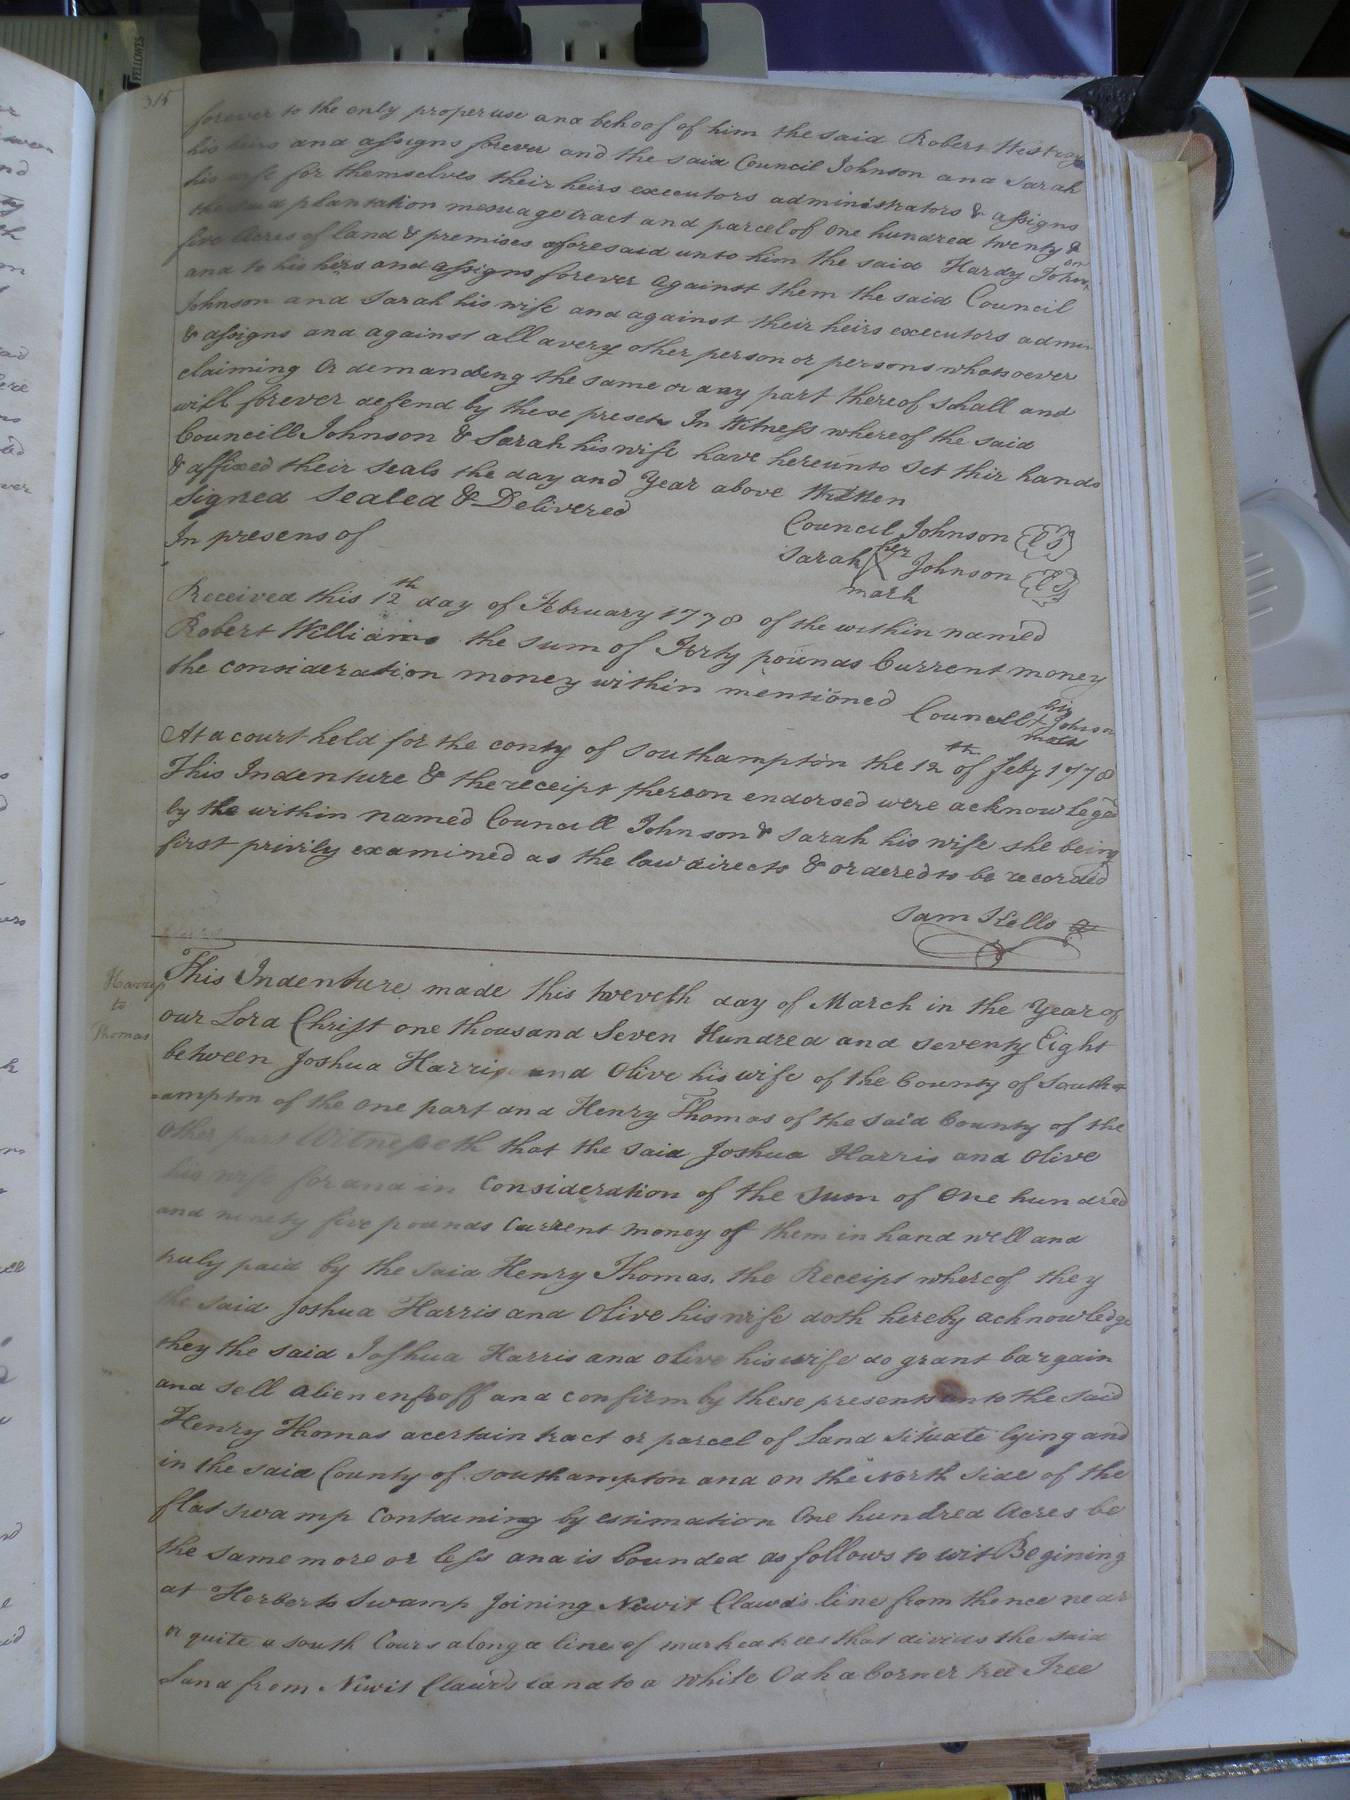 315
forever to the only proper use and behoof of him the said Robert
his heirs and assigns forever and the said Council Johnson and Sarah
his wife for themselves their heirs executors administrators & assigns
the said plantation mesuage tract and parcel of one hundred twenty &
five Acres of land & premises aforesaid unto him the said Hardy Johnson
and to his heirs and assigns forever against them the said Council
Johnson and Sarah his wife and against their heirs executors admin
& assigns and against all avery other person or persons whatsoever
claiming Or demanding the same or any part thereof Schall and
will forever defend by these presets In Witness whereof the said
Councill Johnson & Sarah his wife have hereunto Set thir hands
& affixed their Seals the day and Year above Written
Signed Sealed & Delivered
In presens of
Council Johnson (LS)
Sarah her X mark Johnson (LS)
Received this 12th day of February 1778 of the within named
Robert Williams the sum of Forty pounds Current money
the consideration money within mentioned
Councill his + mark Johnson
At a court held for the conty of Southampton the 12th of feby 1778
This Indenture & the receipt thereon endorsed were acknowleged
by the within named Councill Johnson & Sarah his wife she being
first privily examined as the law directs & ordered to be recorded
Sam Kello
Harris
to
Thomas
This Indenture made this twevelth day of March in the Year of
our Lord Christ one thousand Seven Hundred and seventy Eight
between Joshua Harris and Olive his wife of the County of South=
=ampton of the one part and Henry Thomas of the said County of the
Other part Witnesseth that the said Joshua Harris and Olive
his wife for and in Consideration of the Sum of One hundred
and ninety five pounds Current money of them in hand well and
truly paid by the said Henry Thomas, the Receipt whereof they
the said Joshua Harris and Olive his wife doth hereby acknowledge
they the said Joshua Harris and olive his wife do grant bargain
and sell alien enfeoff and confirm by these presents unto the said
Henry Thomas acertain tract or parcel of Land situate lying and
in the said County of southampton and on the North Side of the
flat swamp Containing by estimation One hundred Acres be
the same more or less and is bounded as follows to wit Begining
at Herberts Swamp Joining Newit Claud's line from thence near
or quite a south Cours along a line of marked trees that divids the said
Land from Newit Claud's land to a White Oak a Corner tree Tree